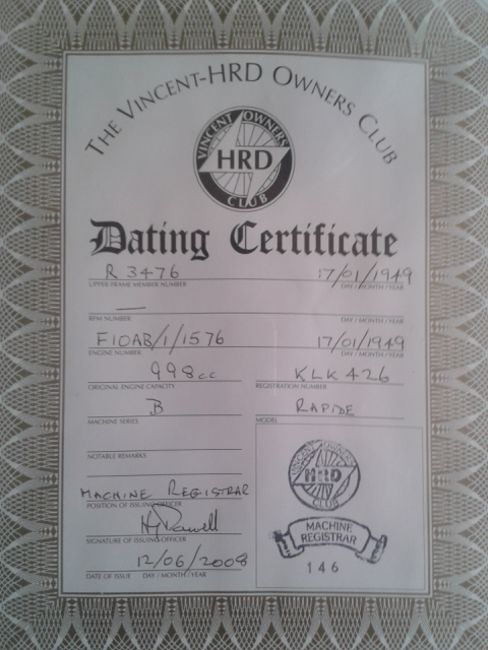 THE VINCENT-HRD OWNERS CLUB
VINCENT OWNERS
HRD
CLUB
Dating Certificate
R 3476 17/01/1949
UPPER FRAME MEMBER NUMBER DAY / MONTH / YEAR
—
RFM NUMBER DAY / MONTH / YEAR
F10AB/1/1576 17/01/1949
ENGINE NUMBER DAY / MONTH / YEAR
998cc KLK 426
ORIGINAL ENGINE CAPACITY REGISTRATION NUMBER
B RAPIDE
MACHINE SERIES MODEL
NOTABLE REMARKS
MACHINE REGISTRAR
POSITION OF ISSUING OFFICER
SIGNATURE OF ISSUING OFFICER
12/06/2008
DATE OF ISSUE DAY / MONTH / YEAR
VINCENT OWNERS
HRD
CLUB
MACHINE
REGISTRAR
146